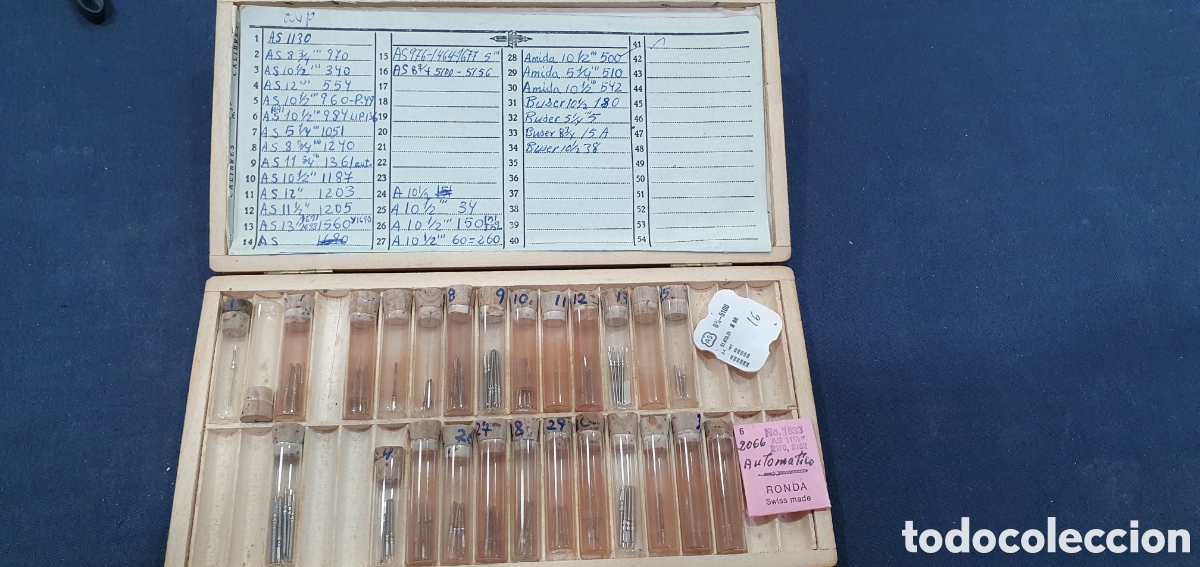 1 AS 1130
2 AS 8 3/4 ''' 970
3 AS 10 1/2 ''' 340
4 AS 12 ''' 554
5 AS 10 1/2 ''' 960-P.49
6 AS 10 1/2 ''' 984
7 AS 5 1/4 ''' 1051
8 AS 8 3/4 ''' 1240
9 AS 11 3/4 ''' 1361 aut.
10 AS 10 1/2 ''' 1187
11 AS 12'' 1203
12 AS 11 1/2 '' 1205
13 AS 13 ''' 1560
14 AS 1680
15 AS 976-1464-1677 5'''
16 AS 8 3/4 5100-5156
17
18
19
20
21
22
23
24 A 10 1/2
25 A 10 1/2 ''' 34
26 A. 10 1/2 ''' 150
27 A. 10 1/2 ''' 60=260
28 Amida 10 1/2 ''' 500
29 Amida 5 1/4 ''' 510
30 Amida 10 1/2 ''' 542
31 Buser 10 1/2 180
32 Buser 5 1/4 ''' 5
33 Buser 8 3/4 15 A
34 Buser 10 1/2 38
35
36
37
38
39
40
41
42
43
44
45
46
47
48
49
50
51
52
53
54
CALIBRES
8
9
10.
11
12
13
5.
AS
8¾-5100
16
24
26
27
8
29
6
No. 3833
AS 11½'''
2066
Automatico
RONDA
Swiss made
todocoleccion